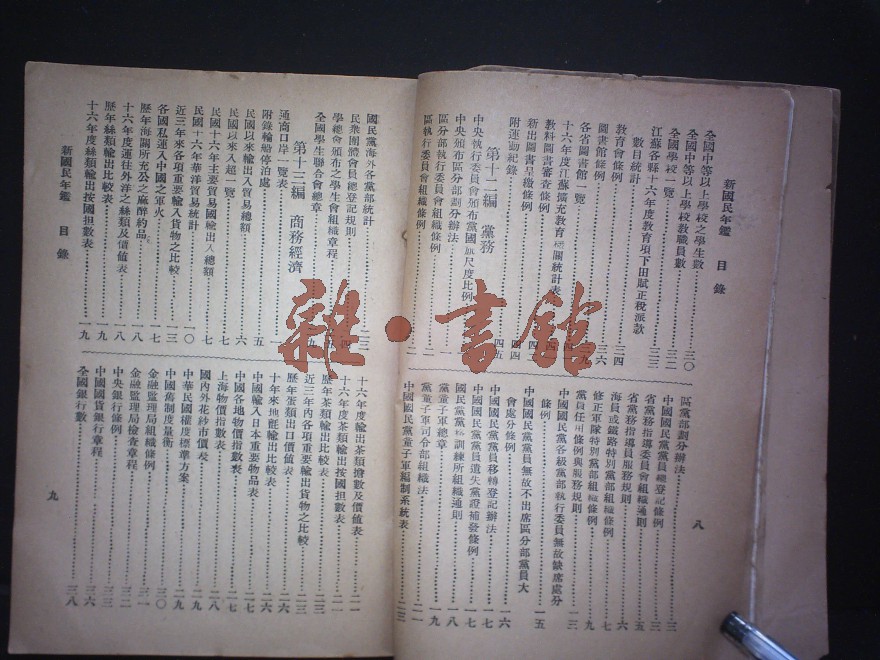 新國民年鑑 目錄
全國中等以上學校之學生數 三〇
全國中等以上學校教職員數
全國學校一覽
江蘇各縣十六年度教育項下田賦正稅派款
數目統計 三三
教育會條例 三四
圖書館條例 三六
各省圖書館一覽
十六年度江蘇擴充教育機關統計表
教科圖書審查條例
新出圖書呈繳條例 四四
附運動紀錄 四五
第十二編 黨務
中央執行委員會頒布黨國旗尺度比例
中央頒布區分部劃分辦法
區分部執行委員會組織條例
區執行委員會組織條例 二
區黨部劃分辦法 三
中國國民黨黨員總登記條例 三
省黨務指導委員會組織通則 三
省黨務指導員服務規則 五
海員或鐵路特別黨部組織條例 六
修正軍隊特別黨部組織條例 九
黨員任用條例與服務規則 一三
中國國民黨各級黨部執行委員無故缺席處分
條例 一五
中國國民黨黨員無故不出席區分部黨員大
會處分條例 一六
中國國民黨黨員移轉登記辦法 一七
中國國民黨黨員遺失黨證補發條例 一七
國民黨黨務訓練所組織通則 一八
黨童子軍總章 一九
黨童子軍司令部組織法 二一
中國國民黨黨童子軍編制系統表 二三
八
國民黨海外各黨部統計 二三
民衆團體會員總登記規則
學總會頒布之學生會組織章程
全國學生聯合會總章
第十三編 商務經濟
通商口岸一覽表 一
附錄輪船停泊處 五
民國以來輸出入貿易總額 六
民國以來入超一覽 七
民國十六年主要貿易國輸出入總額 七
民國十六年華洋貿易統計 一〇
近三年來各項重要輸入貨物之比較 一三
各國私運入中國之軍火 一七
歷年海關所充公之麻醉藥品 一八
十六年度運往外洋之絲類及價值表 一八
歷年絲類輸出比較表 一九
十六年度絲類輸出按國担數表 一九
新國民年鑑 目錄
十六年度輸出茶類擔數及價值表 二一
十六年度茶類輸出按國担數表 二二
歷年茶類輸出比較表 二三
近三年內各項重要輸出貨物之比較 二三
歷年蛋類出口價值表 二六
十年來地氈輸出比較表 二六
中國輸入日本重要物品表 二七
中國各地物價指數表 二七
上海物價指數表 二八
國內外花紗市價表 二九
中華民國權度標準方案 二九
中國舊制度量衡 三〇
金融監理局組織條例 三一
金融監理局檢查章程 三二
中央銀行條例 三三
中國國貨銀行章程 三六
全國銀行數 三八
九
雜·書館